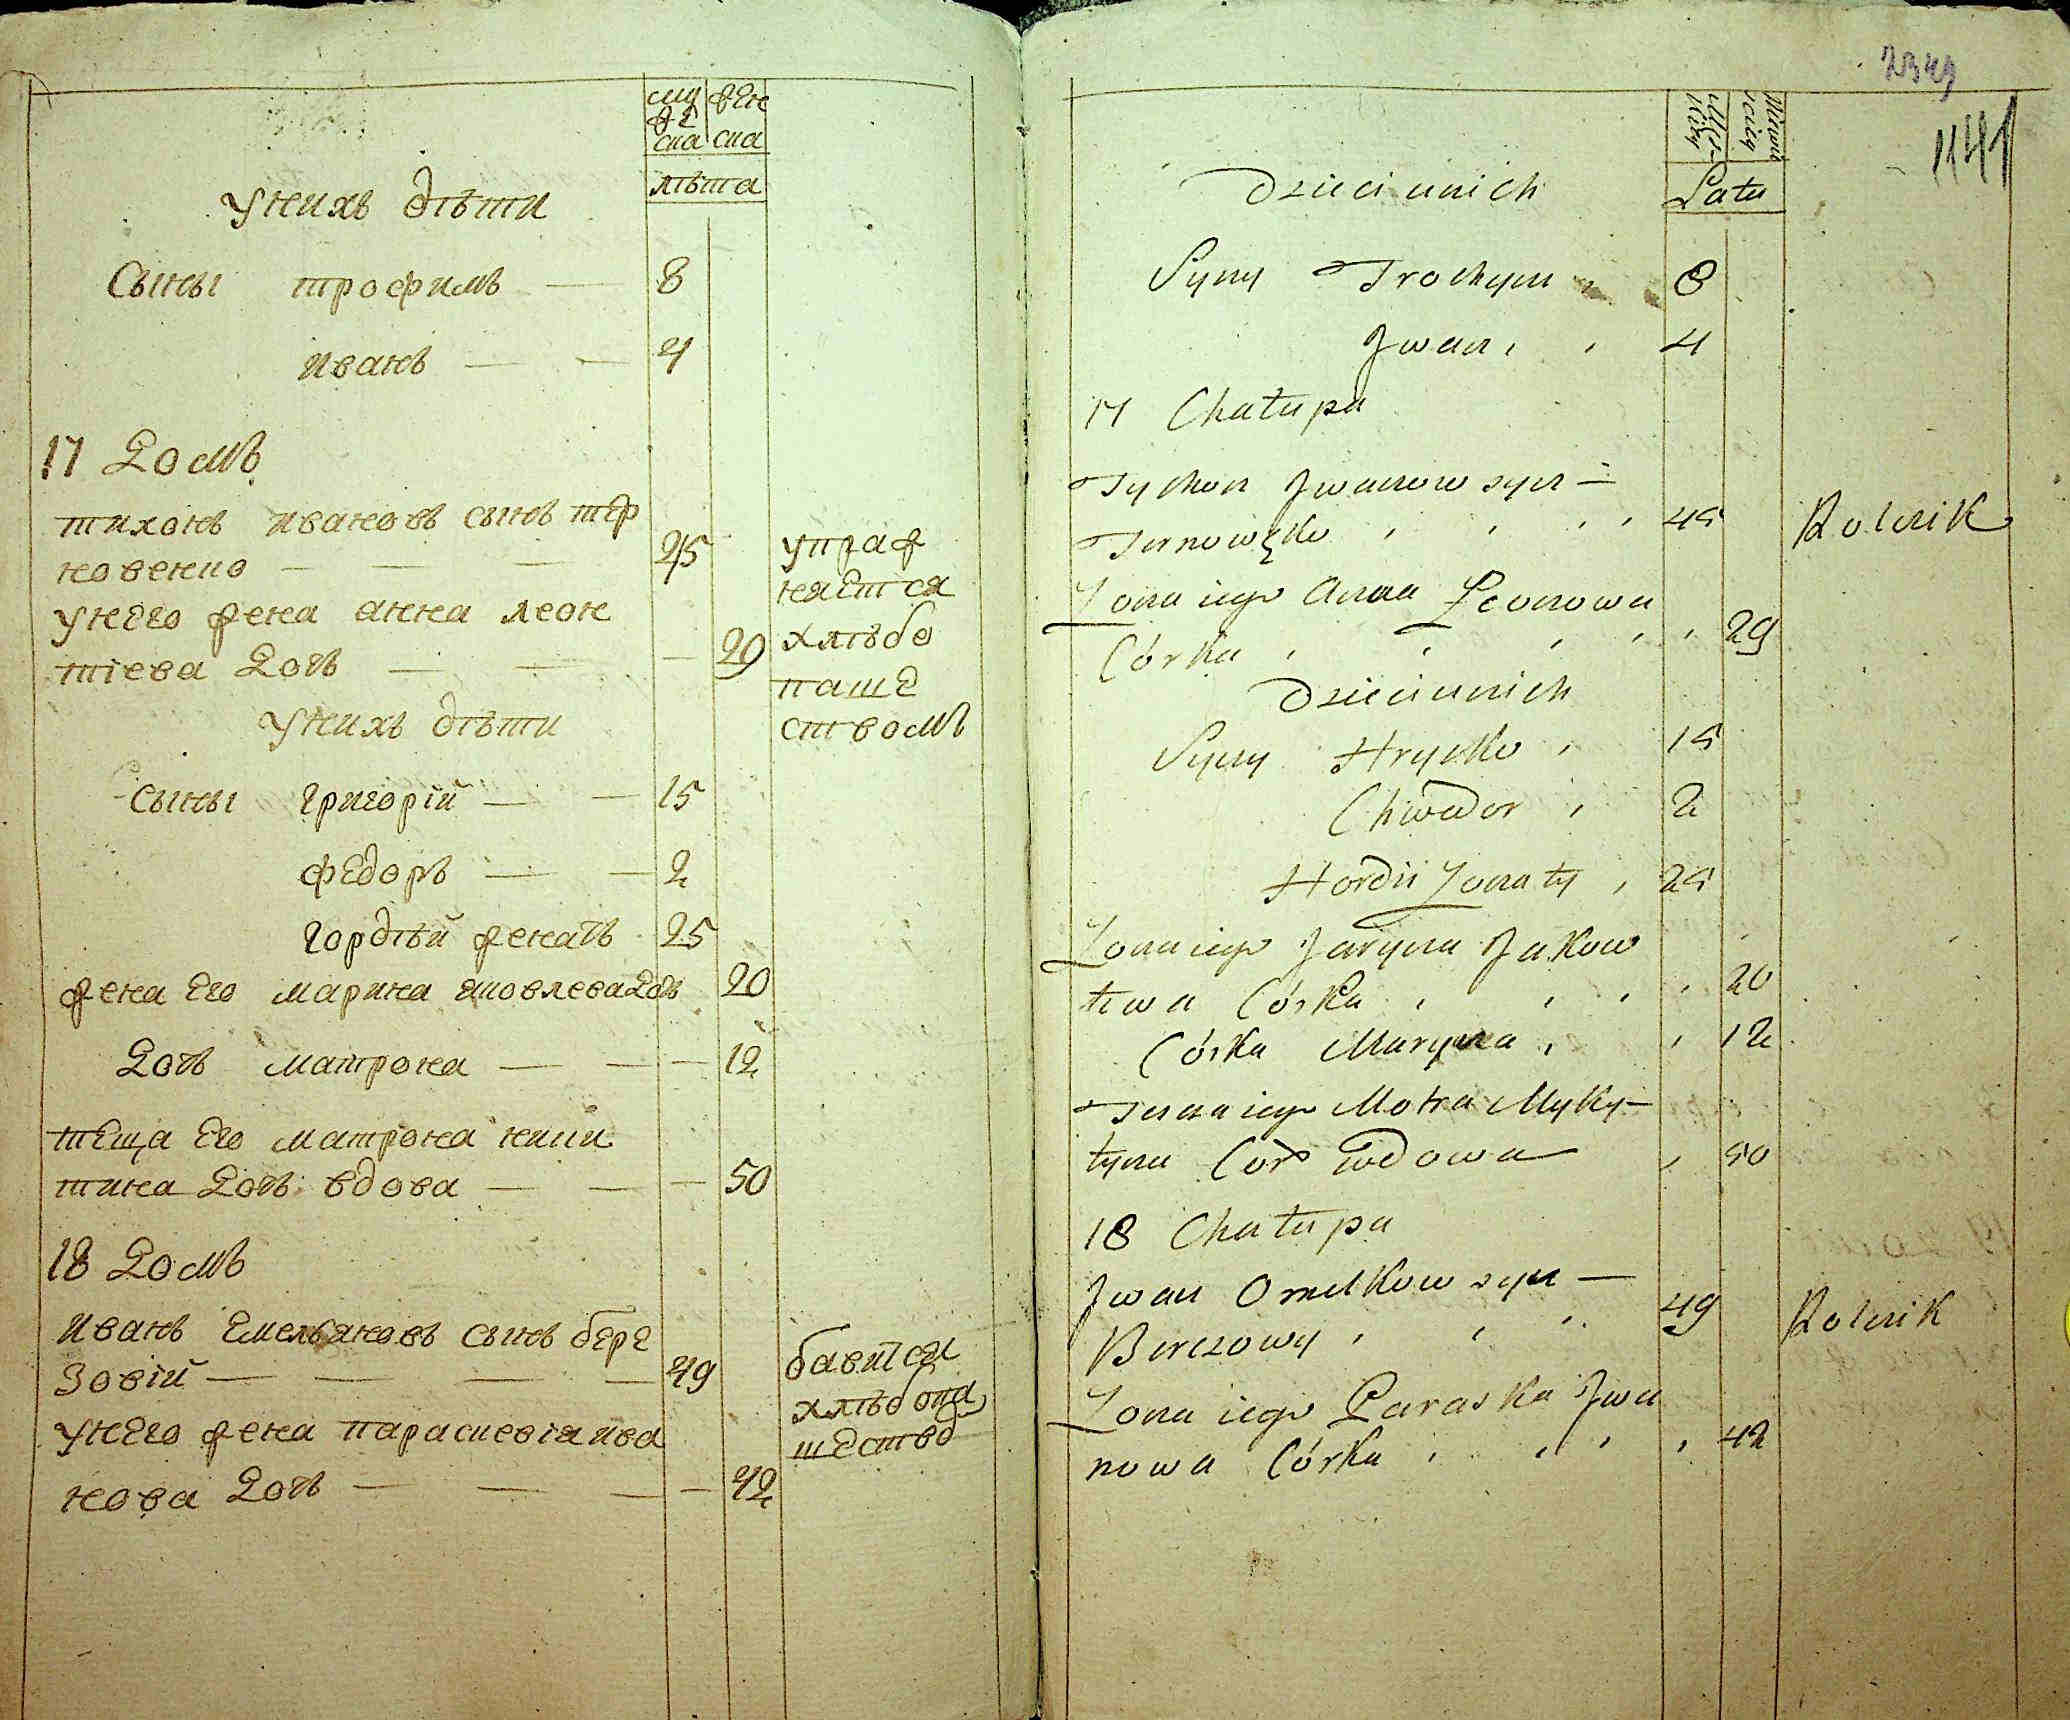 муже
ска
жен
ска
лѣта
У нихъ дѣти
Сыны трофимъ — 8
иванъ — — 4
17 Домъ
тихонъ ивановъ сынъ тер
новенко — — — 45
упраж
няется
хлѣбо
паше
ствомъ
у него жена анна леон
тіева Дочь — — — 29
У нихъ дѣти
Сыны григорій — — 15
федоръ — — 2
гордѣй женатъ 25
жена его марина яковлева Дочь 20
Дочь матрона — — — 12
теща его матрона ники
тина Дочь вдова — — — 50
18 Домъ
иванъ емельяновъ сынъ бере
зовій — — — — 49
бавится
хлѣбопа
шество
у него жена параскевія ива
нова Дочь — — — — 42
2349
1141
Męs
kiey
Latu
Dzieci u nich
Syny Trochym 8
Jwan 4
17 Chałupa
Tychon Jwanow syn —
Ternowęko 45 Rolnik
Zona iego Anna Leonowa
Córka 29
Dzieci u nich
Syny Hrycko 15
Chwedor 2
Hordii Zonaty 25
Zona iego Jaryna Jakow
liwa Córka 20
Córka Maryna 12
Tesna iego Motra Myky-
tyna Cór wdowa 50
18 Chałupa
Jwan Omelkow syn —
Berezowy 49 Rolnik
Zona iego Paraska Jwa
nowa Córka 42